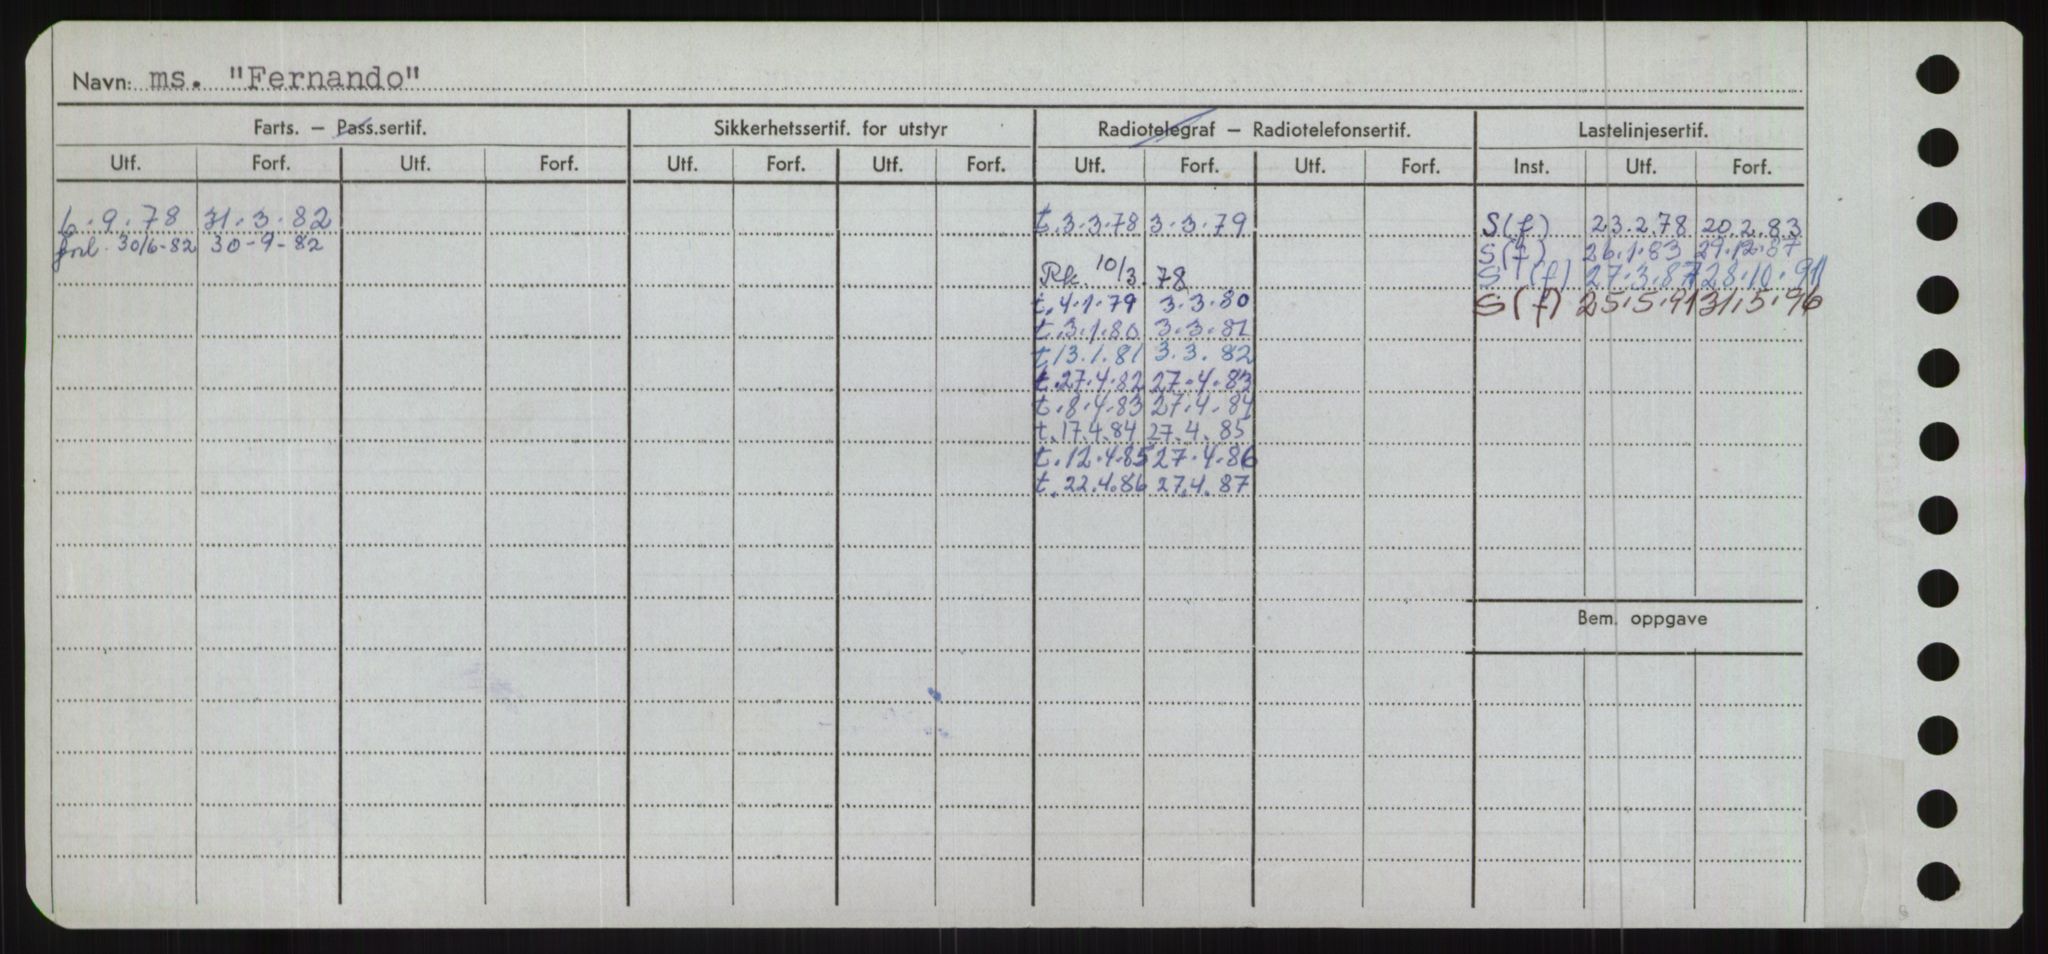 Navn: ms. "Fernando"
Farts. – Pass.sertif. Sikkerhetssertif. for utstyr Radiotelegraf – Radiotelefonsertif. Lastelinjesertif.
Utf. Forf. Utf. Forf. Utf. Forf. Utf. Forf. Utf. Forf. Utf. Forf. Inst. Utf. Forf.
6.9.78 31.3.82 t.3.3.78 3.3.79 S(f) 23.2.78 20.2.83
forl. 30/6-82 30-9-82 S(f) 26.1.83 29.12.87
Rk. 10/3.78 S(f) 27.3.87 28.10.91
t.4.1.79 3.3.80 S(f) 25.5.91 31.5.96
t.3.1.80 3.3.81
t.13.1.81 3.3.82
t.27.4.82 27.4.83
t.8.4.83 27.4.84
t.17.4.84 27.4.85
t.12.4.85 27.4.86
t.22.4.86 27.4.87
Bem. oppgave